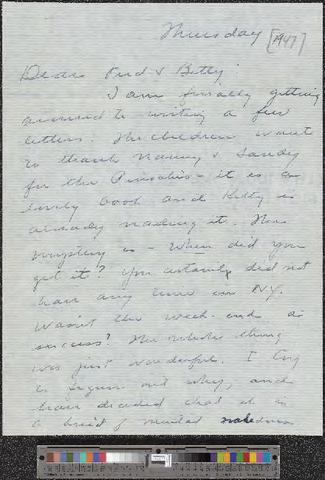 Thursday [1947]
Dear Pud & Betty
I am finally getting
around to writing a few
letters. The children want
to thank Nancy & Sandy
for the Pinochio - it is a
lovely book and Kitty is
already reading it. The
mystery is - When did you
get it? You certainly did not
have any time in N.Y.
Wasn't the week-end a
success? The whole thing
was just wonderful. I try
to figure out why, and
have decided that it is
a kind of mental